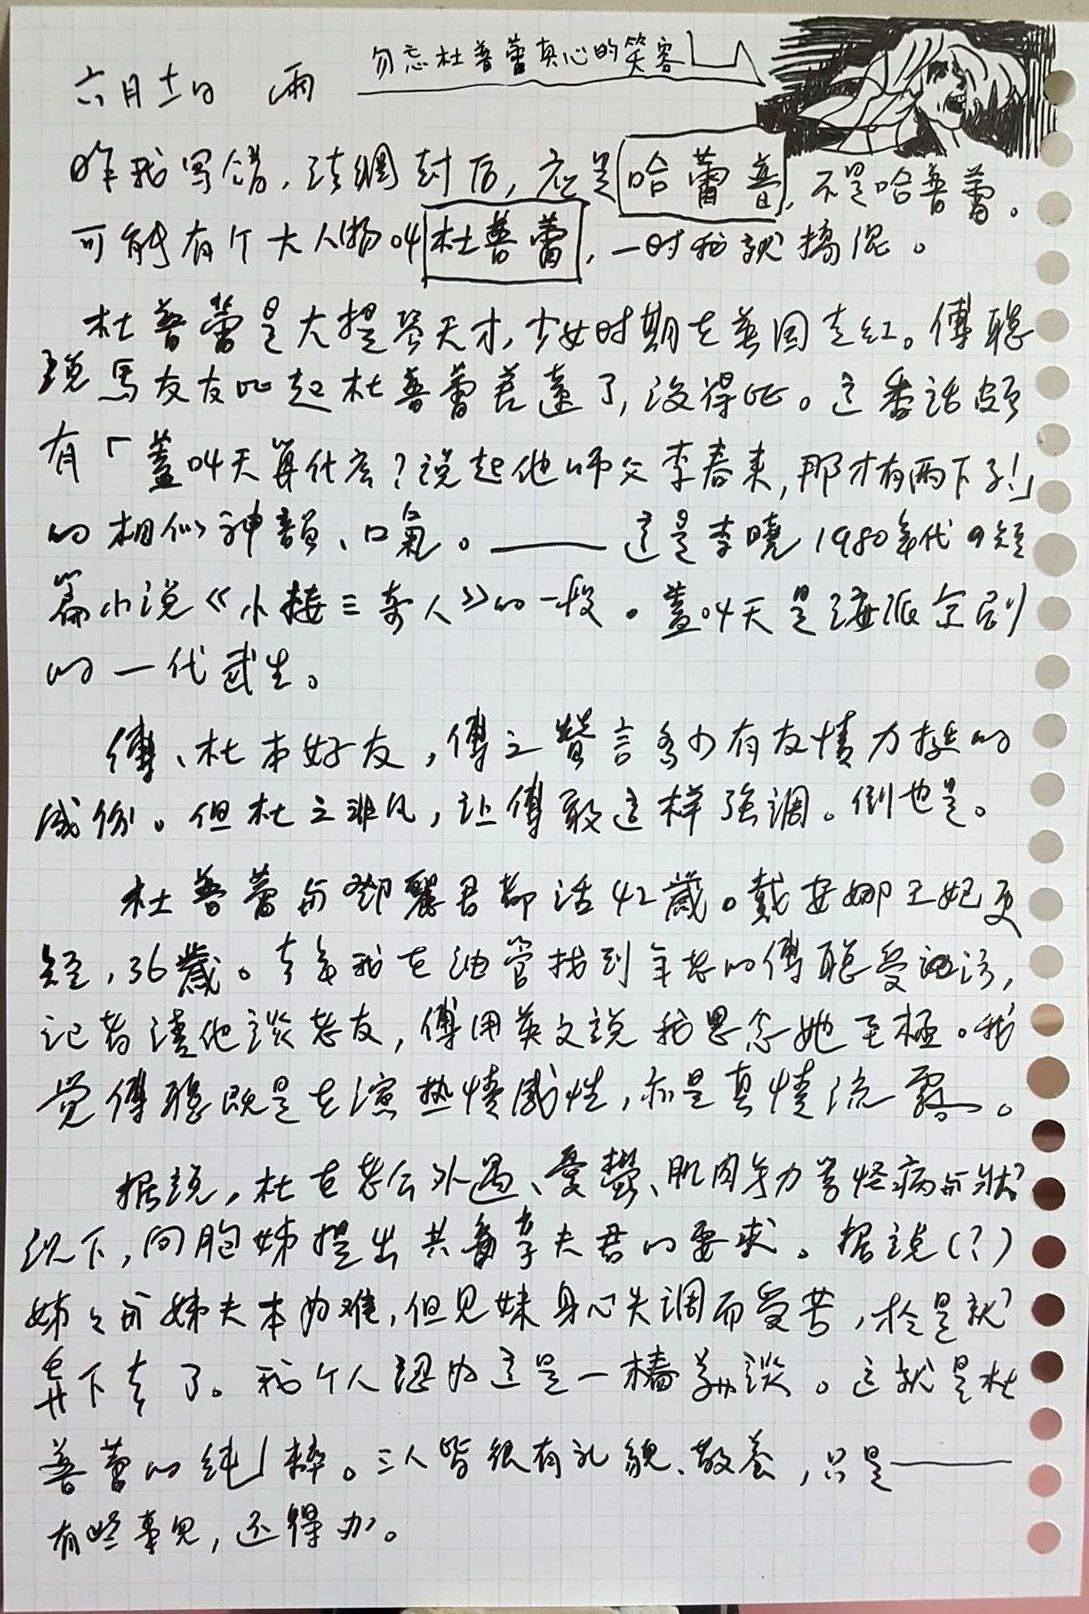 勿忘杜普蕾真心的笑容
六月十一日 雨
昨我写錯，法網封后，应是哈蕾普，不是哈普蕾。
可能有个大人物叫杜普蕾，一时我就搞混。
杜普蕾是大提琴天才，少女时期在英国走红。傅聪
說馬友友比起杜普蕾差遠了，沒得比。这番話頗
有「蓋叫天算什么？说起他师父李春来，那才有两下子！」
的相似神韻、口氣。——这是李曉1980年代的短
篇小说《小楼三奇人》的一段。蓋叫天是海派京剧
的一代武生。
傅、杜本好友，傅之贊言多少有友情力挺的
成份。但杜之非凡，让傅敢这样強調。倒也是。
杜普蕾与鄧麗君都活42歲。戴安娜王妃更
短，36歲。去年我在油管找到年老的傅聪受訪，
记者请他談老友，傅用英文說我思念她至極。我
觉傅聪既是在演热情感性，亦是真情流露。
据說，杜在老公外遇、憂鬱、肌肉無力等怪病的狀
况下，向胞姊提出共享夫君的要求。据说(？)
姊姊与姊夫本为难，但见妹身心失调而受苦，於是就
弄下去了。我个人認为这是一樁美談。这就是杜
普蕾的純粹。三人皆很有礼貌、教养，只是——
有些事兒，还得办。